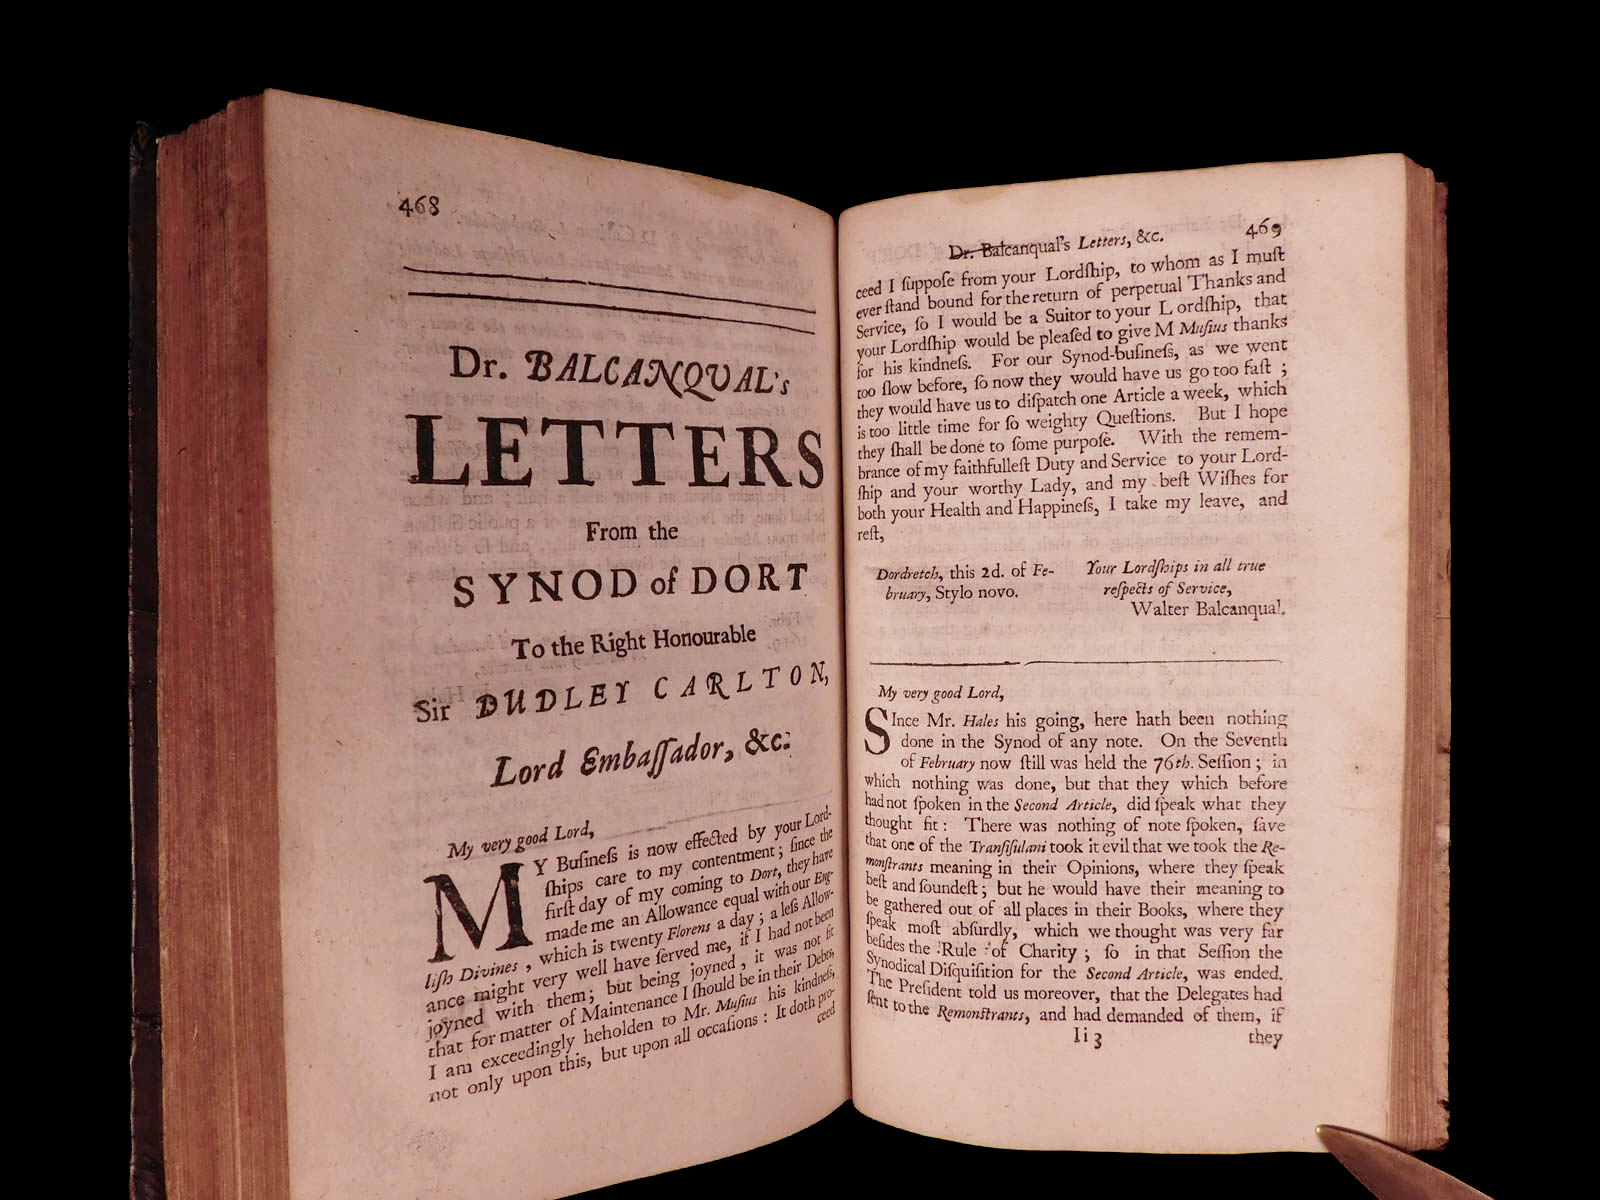 468
Dr. BALCANQUAL's
LETTERS
From the
SYNOD of DORT
To the Right Honourable
Sir DUDLEY CARLTON,
Lord Embaſſador, &c.
My very good Lord,
MY Buſineſs is now effected by your Lord-
ſhips care to my contentment; ſince the
firſt day of my coming to Dort, they have
made me an Allowance equal with our Eng-
liſh Divines, which is twenty Florens a day; a leſs Allow-
ance might very well have ſerved me, if I had not been
joyned with them; but being joyned, it was not fit
that for matter of Maintenance I ſhould be in their Debts,
I am exceedingly heholden to Mr. Muſius his kindneſs,
not only upon this, but upon all occaſions: It doth pro-
ceed
Dr. Balcanqual's Letters, &c. 469
ceed I ſuppoſe from your Lordſhip, to whom as I muſt
ever ſtand bound for the return of perpetual Thanks and
Service, ſo I would be a Suitor to your L ordſhip, that
your Lordſhip would be pleaſed to give M Muſius thanks
for his kindneſs. For our Synod-buſineſs, as we went
too ſlow before, ſo now they would have us go too faſt;
they would have us to diſpatch one Article a week, which
is too little time for ſo weighty Queſtions. But I hope
they ſhall be done to ſome purpoſe. With the remem-
brance of my faithfulleſt Duty and Service to your Lord-
ſhip and your worthy Lady, and my beſt Wiſhes for
both your Health and Happineſs, I take my leave, and
reſt,
Dordretch, this 2d. of Fe-
bruary, Stylo novo.
Your Lordſhips in all true
reſpects of Service,
Walter Balcanqual.
My very good Lord,
SInce Mr. Hales his going, here hath been nothing
done in the Synod of any note. On the Seventh
of February now ſtill was held the 76th. Seſſion; in
which nothing was done, but that they which before
had not ſpoken in the Second Article, did ſpeak what they
thought fit: There was nothing of note ſpoken, ſave
that one of the Tranſiſulani took it evil that we took the Re-
monſtrants meaning in their Opinions, where they ſpeak
beſt and ſoundeſt; but he would have their meaning to
be gathered out of all places in their Books, where they
ſpeak moſt abſurdly, which we thought was very far
beſides the Rule of Charity; ſo in that Seſſion the
Synodical Diſquiſition for the Second Article, was ended.
The Preſident told us moreover, that the Delegates had
ſent to the Remonſtrants, and had demanded of them, if
Ii 3 they